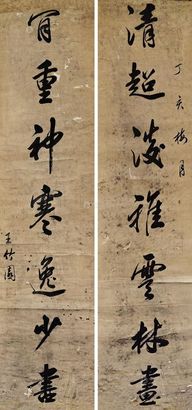 丁亥梅月
清超淡雅雲林畫
骨重神寒逸少書
王竹園